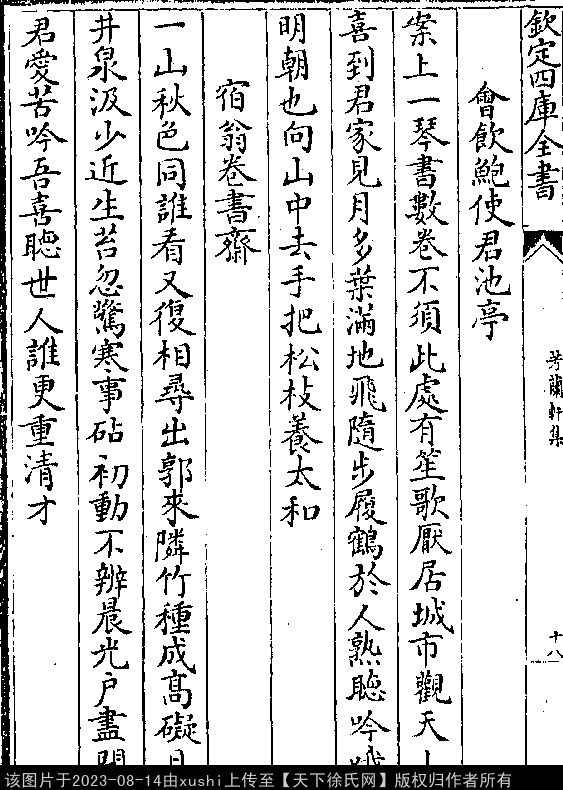 欽定四庫全書
芳蘭軒集
十八
會飲鮑使君池亭
案上一琴書數卷不須此處有笙歌厭居城市觀天
喜到君家見月多葉滿地飛隨步履鶴於人熟聽吟
明朝也向山中去手把松枝養太和
宿翁卷書齋
一山秋色同誰看又復相尋出郭來隣竹種成高礙
井泉汲少近生苔忽驚寒事砧初動不辨晨光户盡
君愛苦吟吾喜聴世人誰更重清才
该图片于2023-08-14由xushi上传至【天下徐氏网】版权归作者所有